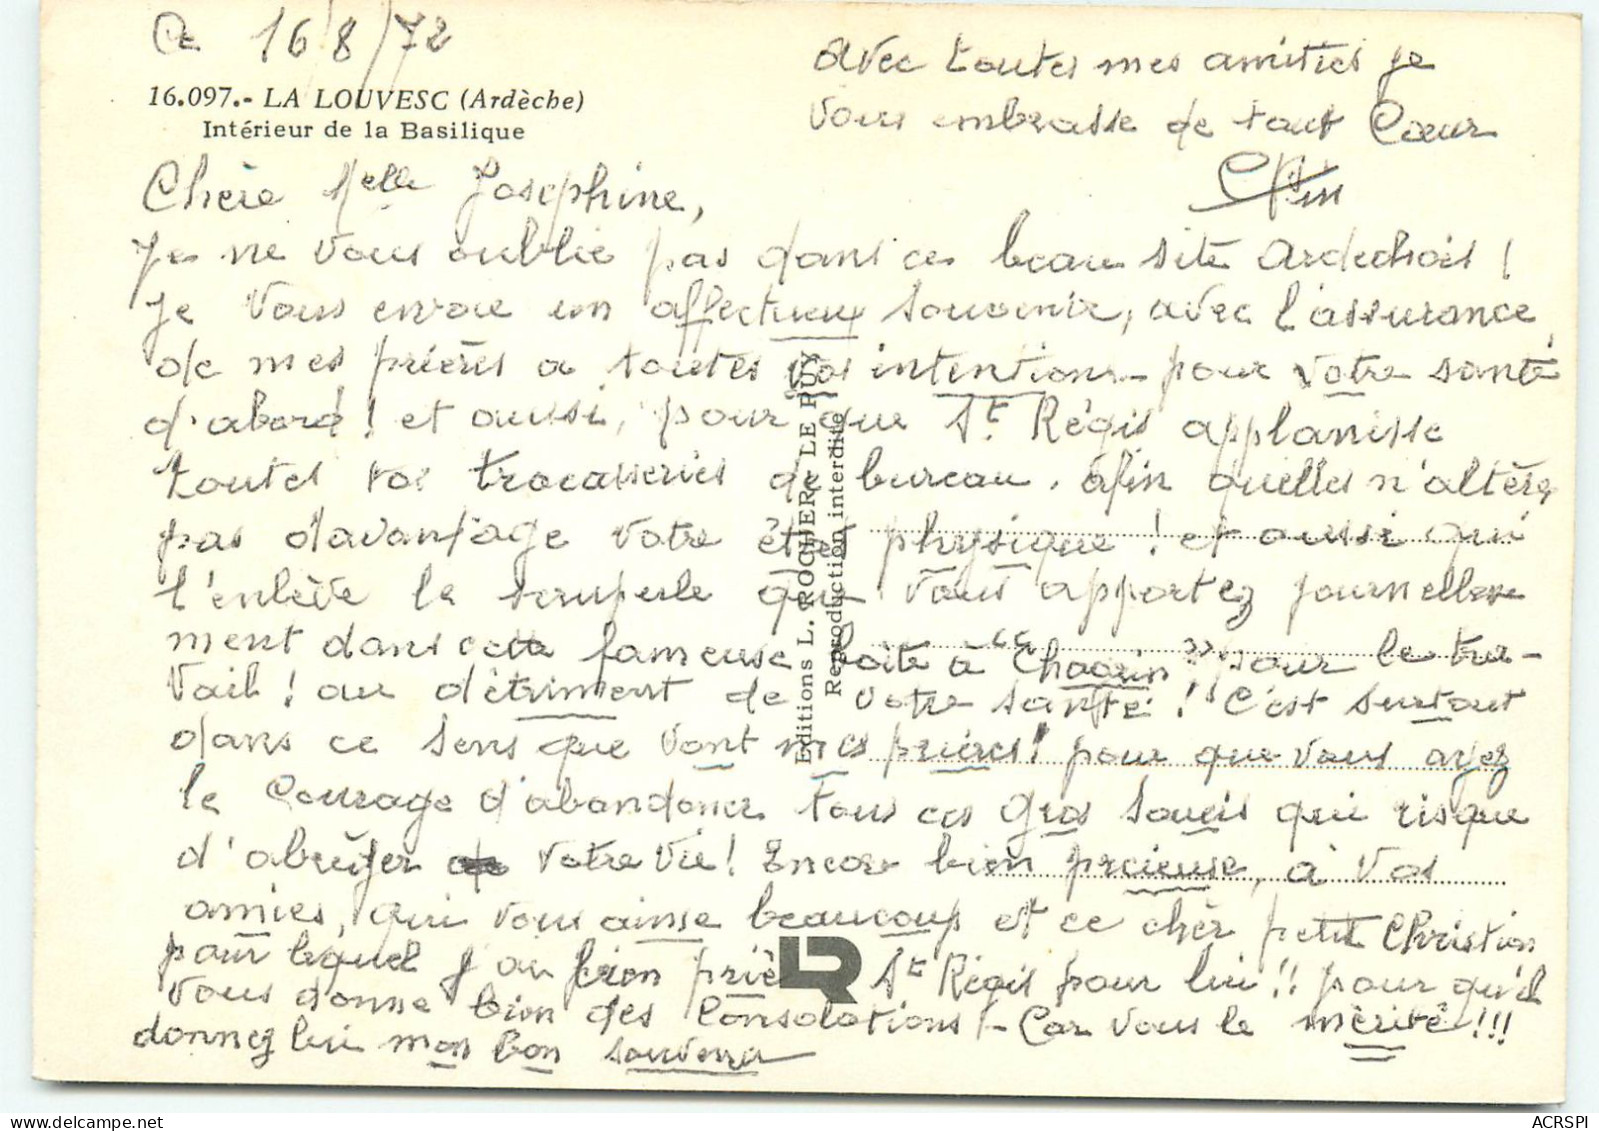 Ce 16/8/72
16.097.- LA LOUVESC (Ardèche)
Intérieur de la Basilique
Chère Melle Josephine,
Je ne vous oublie pas dans ce beau site Ardechois !
Je vous envoie un affectueux souvenir, avec l'assurance
de mes prières a toutes vos intentions - pour votre santé
d'abord ! et aussi, pour que St Régis applanisse
toutes vos trocasseries de bureau. afin quelles n'altères
pas davantage votre être physique ! et aussi qui
l'enlève le scrupule que vous apportez journelle
ment dans cette fameuse boite à " " pour le tra-
vail ! au détriment de votre santé ! C'est surtout
dans ce sens que vont mes prières ! pour que vous ayez
le courage d'abandonner tous ces gros soucis qui risque
d'abréger votre vie ! Encore bien précieuse, à vos
amies, qui vous aime beaucoup et ce chèr petit Christian
pour lequel j'ai bien priè St Régis pour lui !! pour qu'il
vous donne bien des Consolations ! - Car vous le mèrité !!!
donnez lui mon bon souvenir
avec toutes mes amitiés je
vous embrasse de tout Cœur
Editions L. ROCHER. LE PUY
Reproduction interdite
LR
delcampe.net
ACRSPI